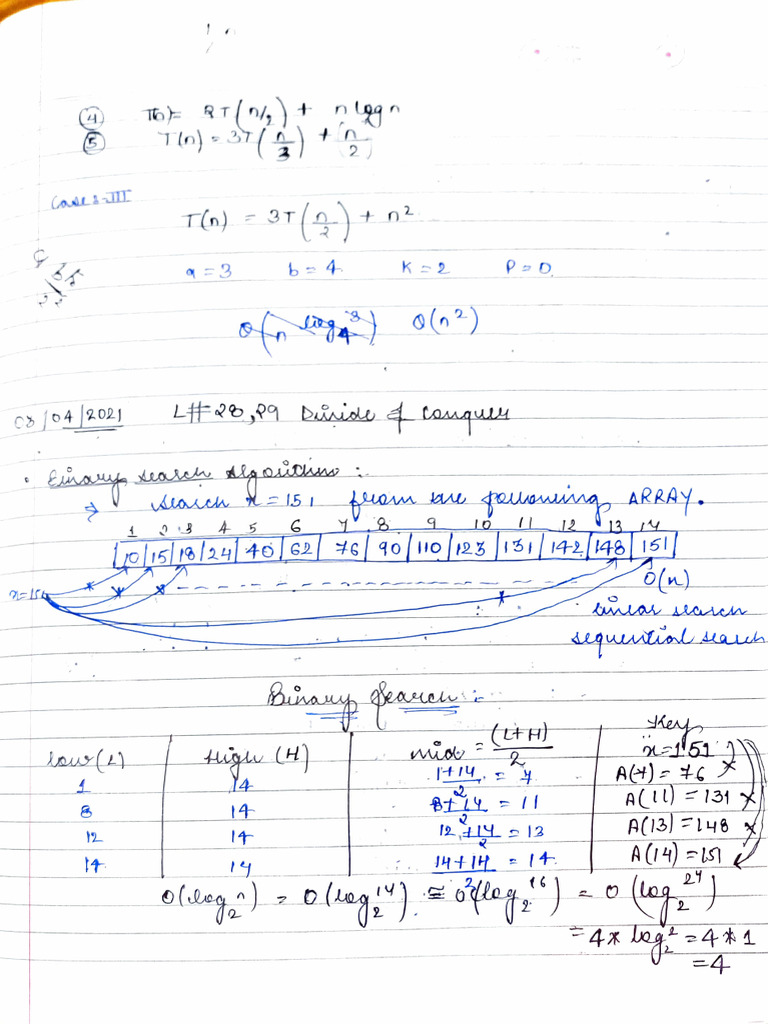 ④ T(n) = 2T(n/2) + n log n
⑤ T(n) = 3T(n/3) + n/2
Case 8-III
T(n) = 3T(n/2) + n²
a = 3 b = 4 K = 2 P = 0
θ(n²)
08/04/2021 L#28,29 Divide & Conquer
• Binary search Algorithm :
→ search x = 151 from the following ARRAY.
1 2 3 4 5 6 7 8 9 10 11 12 13 14
10 15 18 24 40 62 76 90 110 123 131 142 148 151
x=151 O(n)
linear search
sequential search
Binary Search :
Key
low(L) High (H) mid = (L+H)/2 x=151
1 14 1+14/2 = 7 A(7) = 76 ×
8 14 8+14/2 = 11 A(11) = 131 ×
12 14 12+14/2 = 13 A(13) = 148 ×
14 14 14+14/2 = 14 A(14) = 151
O(log₂ n) = O(log₂ 14) ≅ O(log₂ 16) = O(log₂ 2⁴)
= 4 * log₂ 2 = 4 * 1
= 4